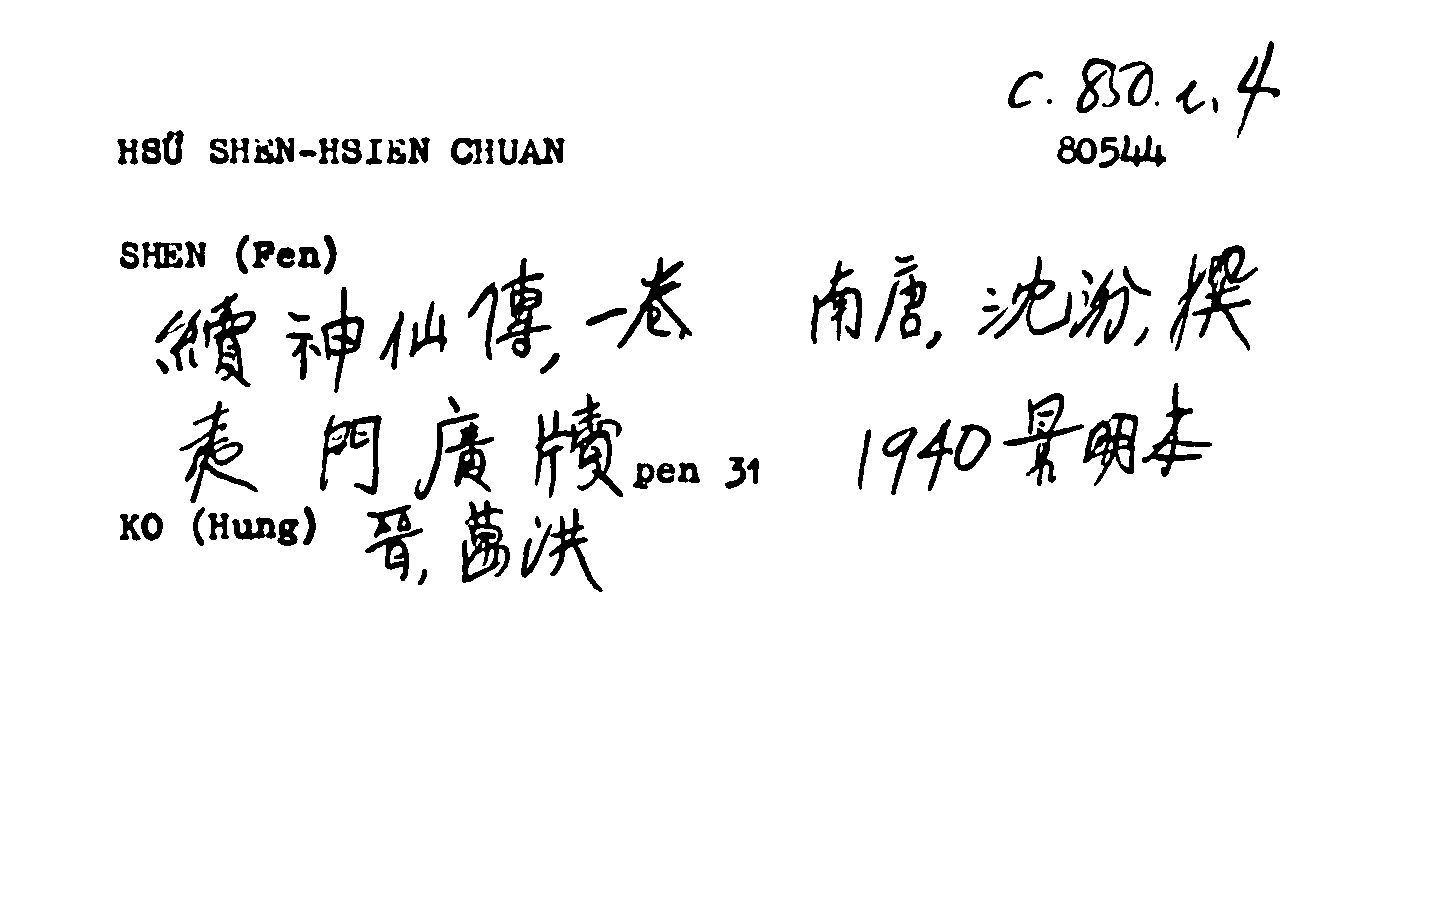 C. 850. e. 4
HSÜ SHEN-HSIEN CHUAN 80544
SHEN (Fen)
續神仙傳, 一卷 南唐, 沈汾, 撰
夷門廣牘 pen 31 1940 景明本
KO (Hung) 晉, 葛洪